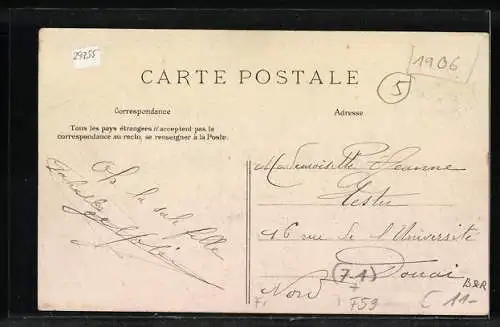 29755
1906
5
CARTE POSTALE
Correspondance
Adresse
Tous les pays étrangers n'acceptent pas la
correspondance au recto, se renseigner à la Poste.
Oh la sale fille
Mademoiselle Jeanne
Testu
16 rue de l'Université
Douai
(71)
Nord
F59
B&R
11-